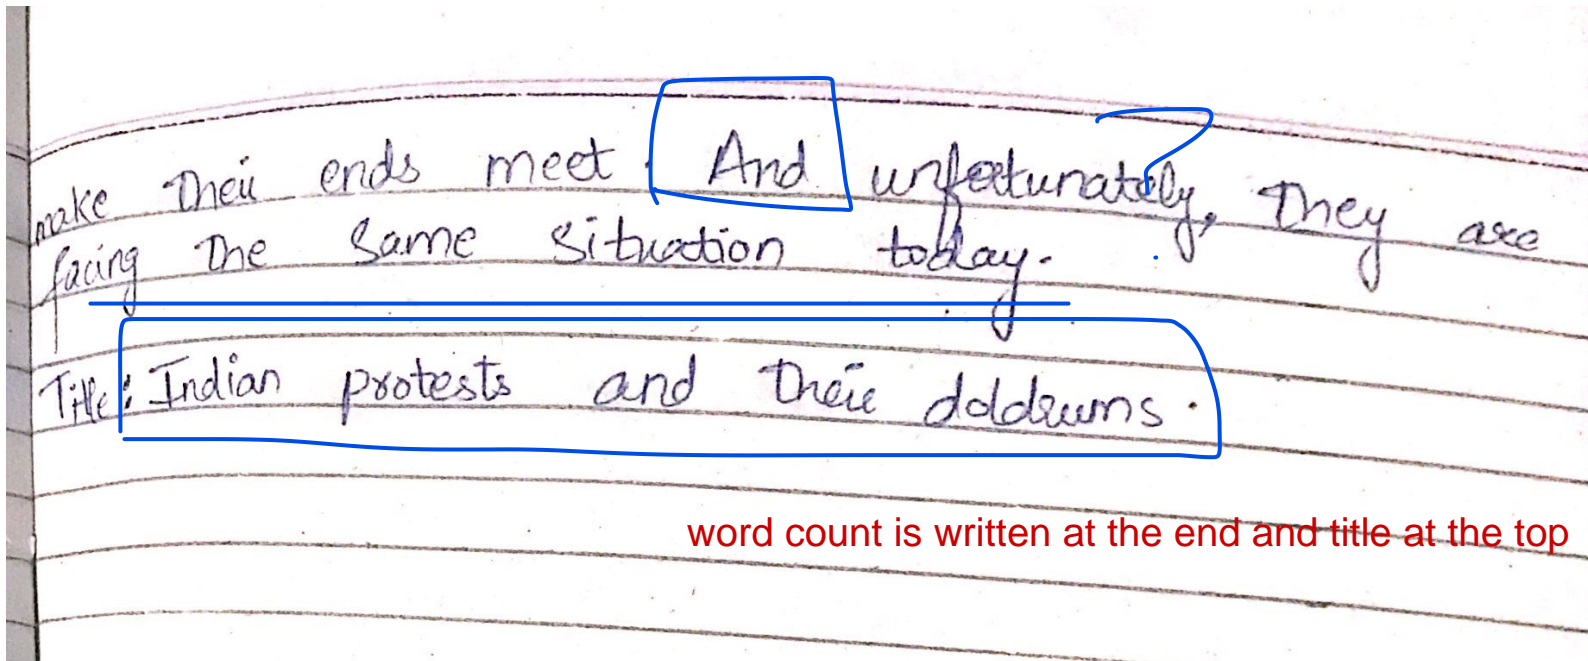 make their ends meet. And unfortunately, they are
facing the same situation today.
Title: Indian protests and their doldrums.
word count is written at the end and title at the top